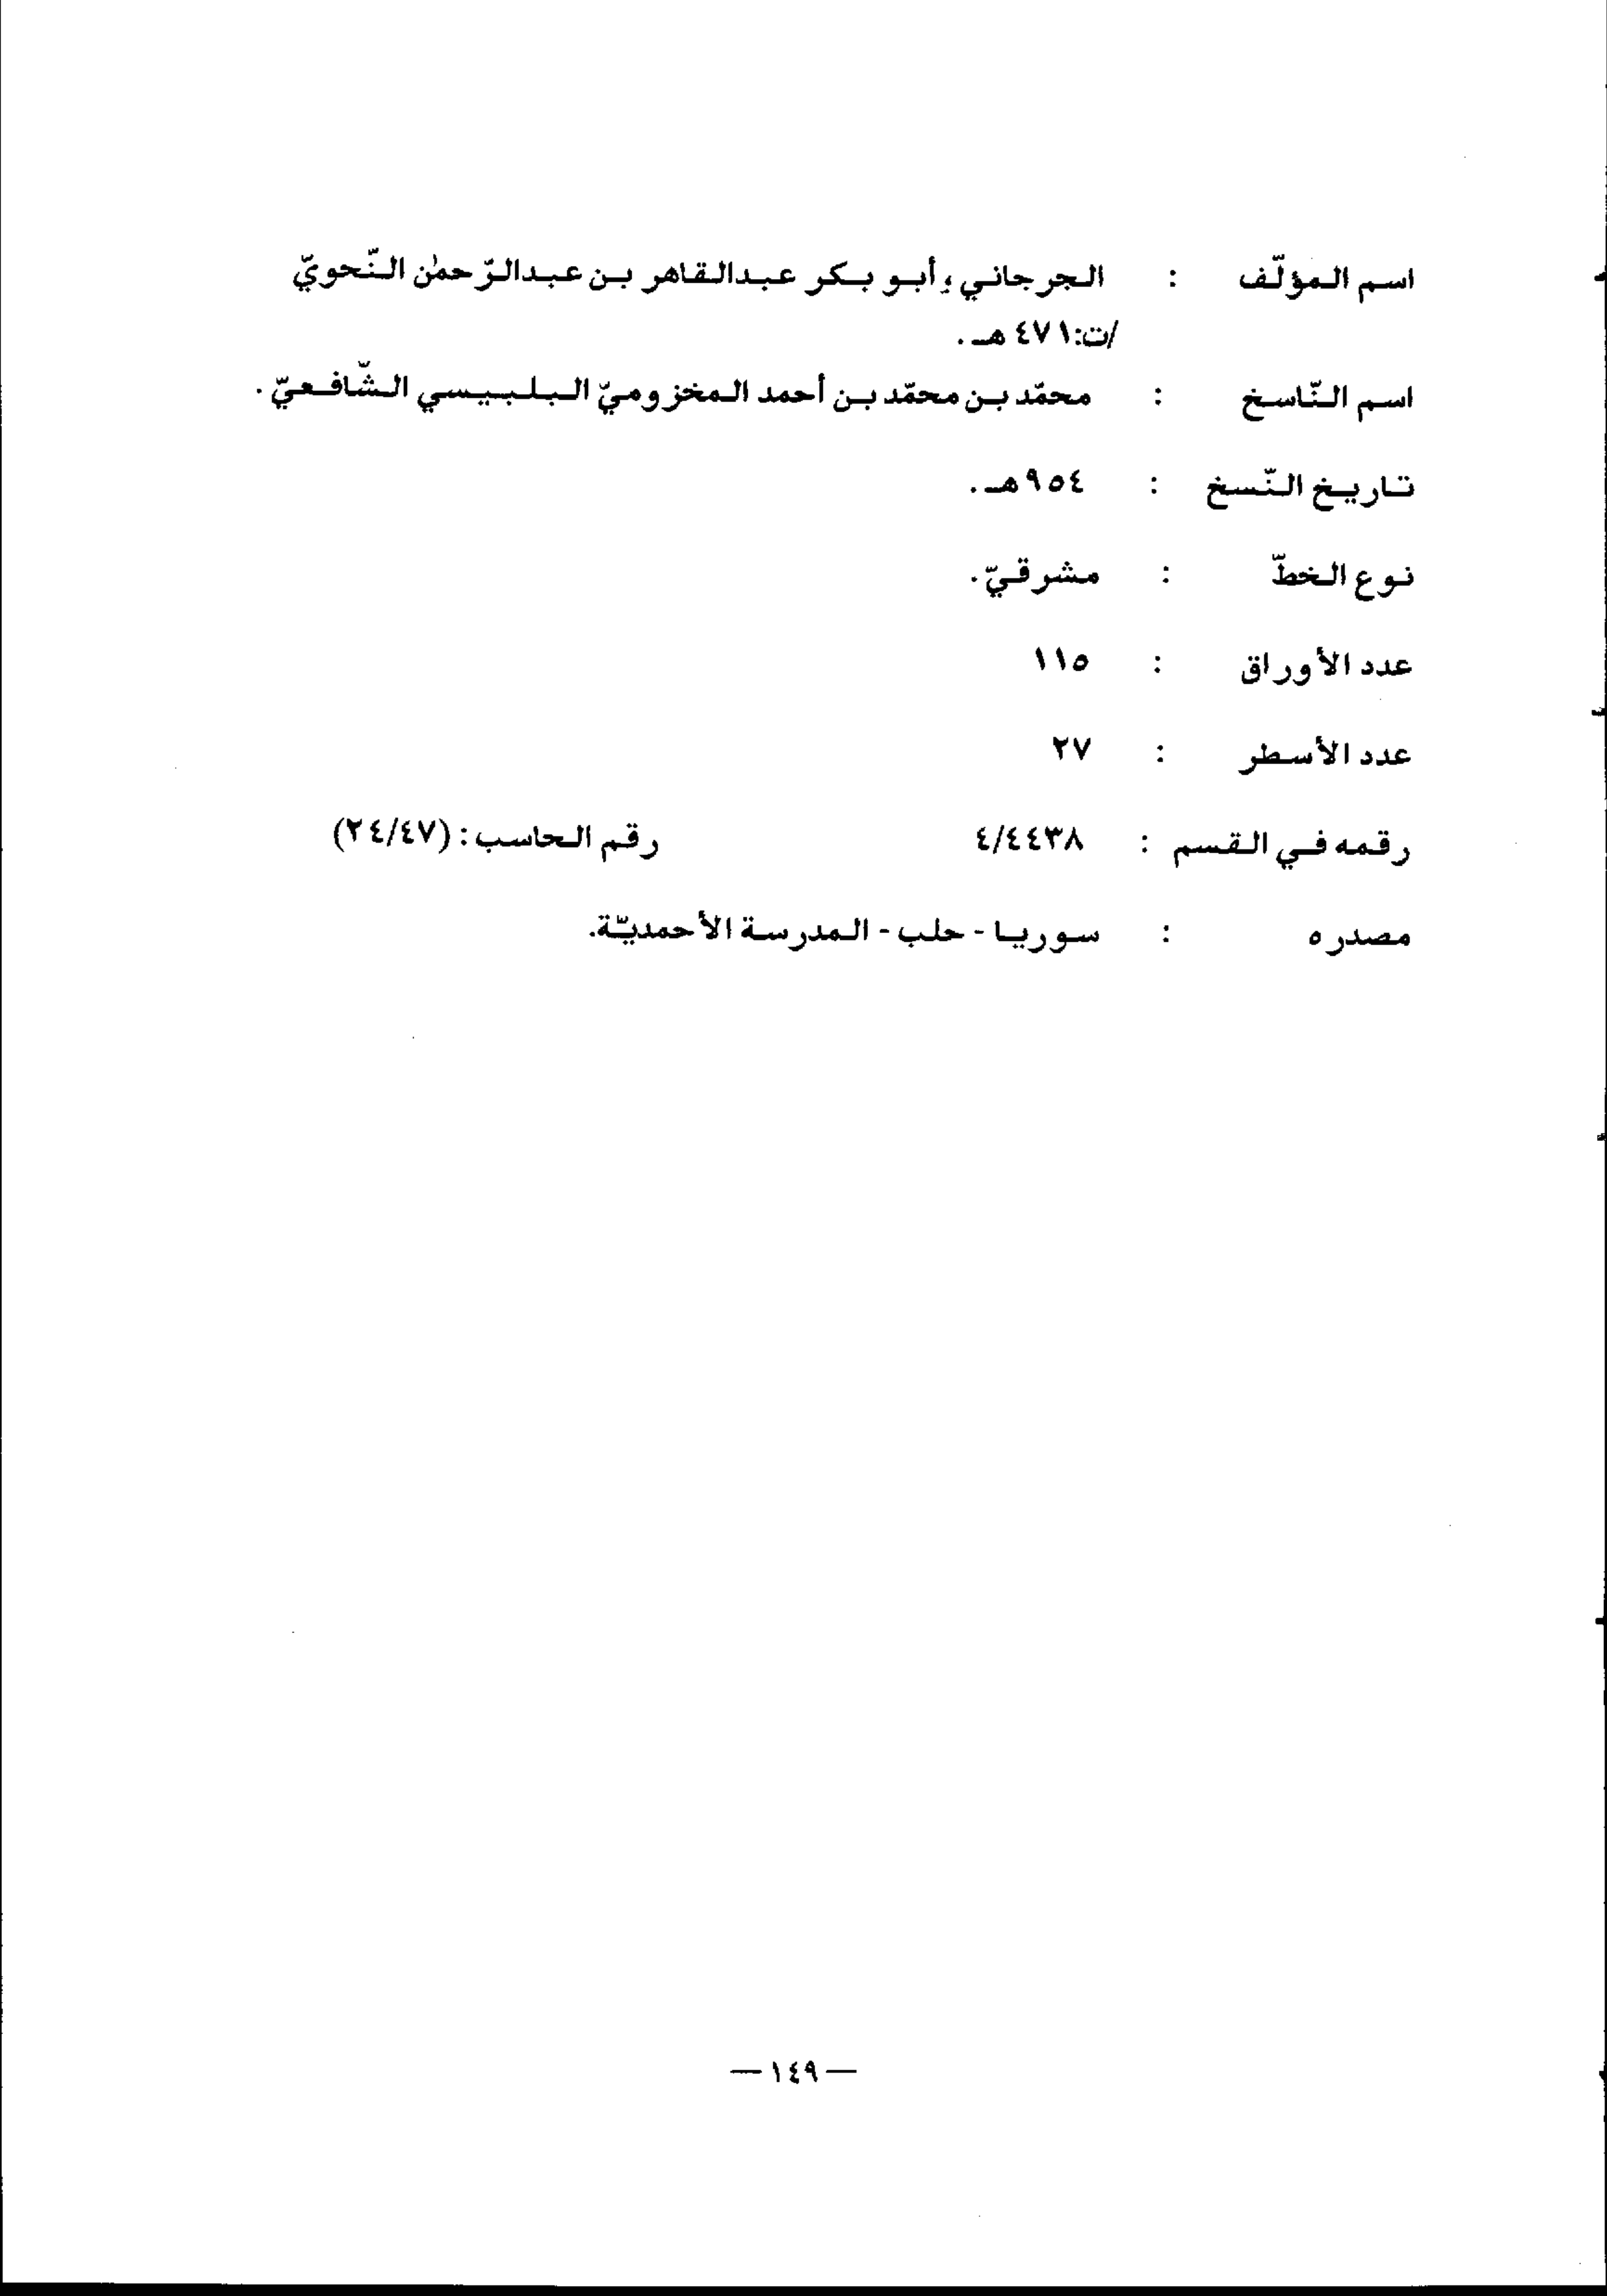 اسم المؤلّف : الجرجاني، أبو بكر عبدالقاهر بن عبدالرّحمٰن النّحويّ
/ت:٤٧١ هـ .
اسم النّاسخ : محمّد بن محمّد بن أحمد المخزوميّ البلبيسي الشّافعيّ .
تاريخ النّسخ : ٩٥٤هـ .
نوع الخطّ : مشرقيّ .
عدد الأوراق : ١١٥
عدد الأسطر : ٢٧
رقمه في القسم : ٤/٤٤٣٨ رقم الحاسب : (٢٤/٤٧)
مصدره : سوريا - حلب - المدرسة الأحمديّة.
— ١٤٩ —